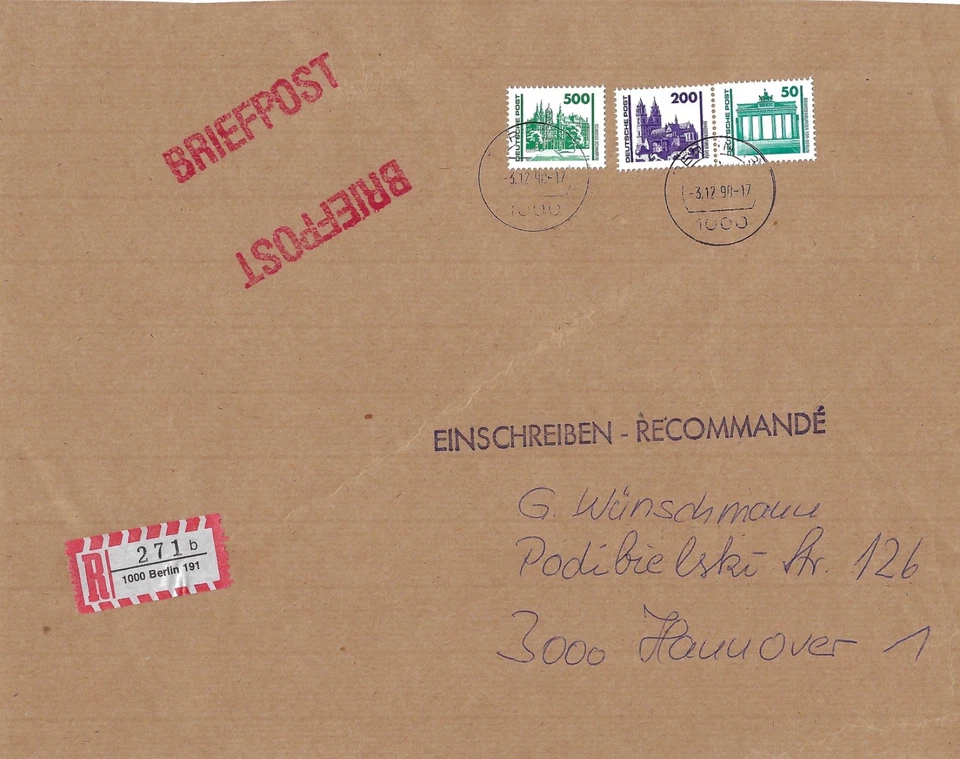 BRIEFPOST
BRIEFPOST
DEUTSCHE POST 500
DEUTSCHE POST 200
DEUTSCHE POST 50
-3.12.90-17
1000
-3.12.90-17
1000
EINSCHREIBEN - RECOMMANDÉ
G. Wünschmann
Podibielski Str. 126
3000 Hannover 1
R 271 b
1000 Berlin 191